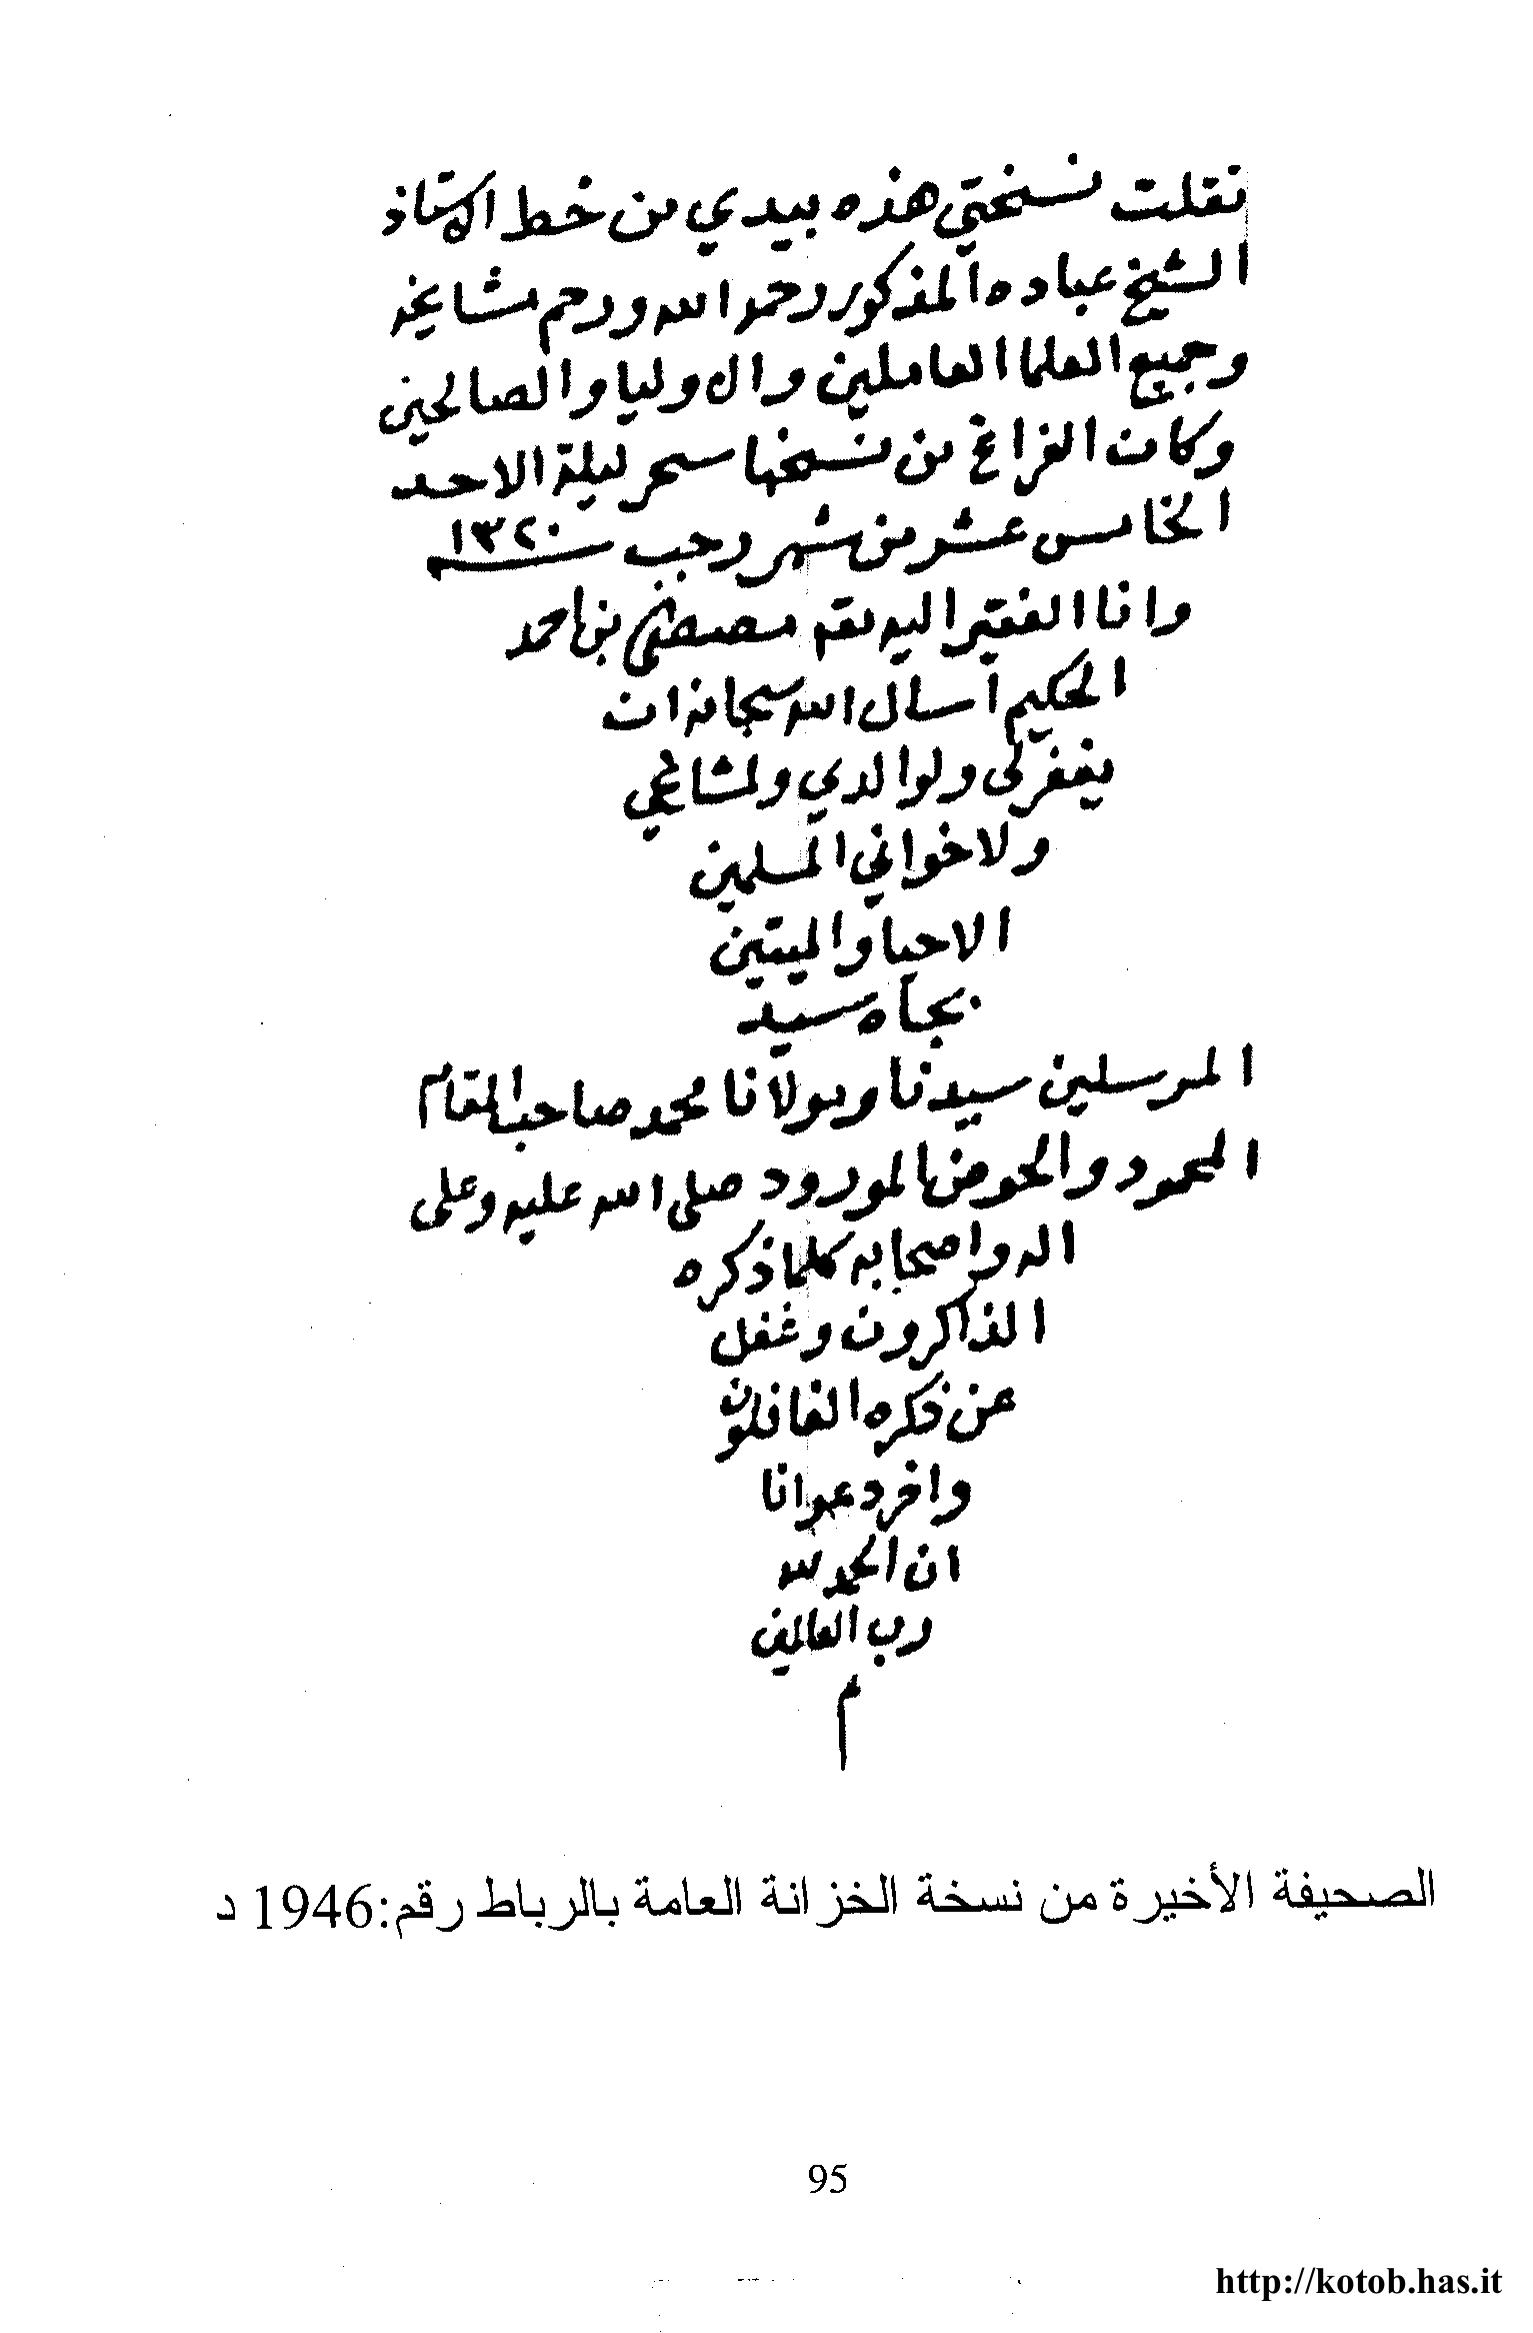 نقلت نسختي هذه بيدي من خط الاستاذ
الشيخ عباده المذكور رحمه الله ورحم مشايخه
وجميع العلما العاملين والاوليا والصالحين
وكان الفراغ من نسخها سحر ليلة الاحد
الخامس عشر من شهر رجب سنة ١٣٢٠
وانا الفقير اليه مصطفى بن احمد
الحكيم اسال الله سبحانه ان
يغفر لى ولوالدي ولمشايخي
ولاخواني المسلمين
الاحيا والميتين
بجاه سيد
المرسلين سيدنا ومولانا محمد صاحب المقام
المحمود والحوض المورود صلى الله عليه وعلى
اله واصحابه كلما ذكره
الذاكرون وغفل
عن ذكره الغافلون
واخر دعوانا
ان الحمد لله
رب العالمين
م
الصحيفة الأخيرة من نسخة الخزانة العامة بالرباط رقم:1946 د
95
http://kotob.has.it